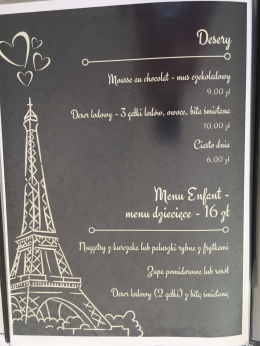 Desery
Mousse au chocolat - mus czekoladowy
9.00 zł
Deser lodowy - 3 gałki lodów, owoce, bita śmietana
10.00 zł
Ciasto dnia
6.00 zł
Menu Enfant -
menu dziecięce - 16 zł
Nuggetsy z kurczaka lub paluszki rybne z frytkami
Zupa pomidorowa lub rosół
Deser lodowy (2 gałki) z bitą śmietaną